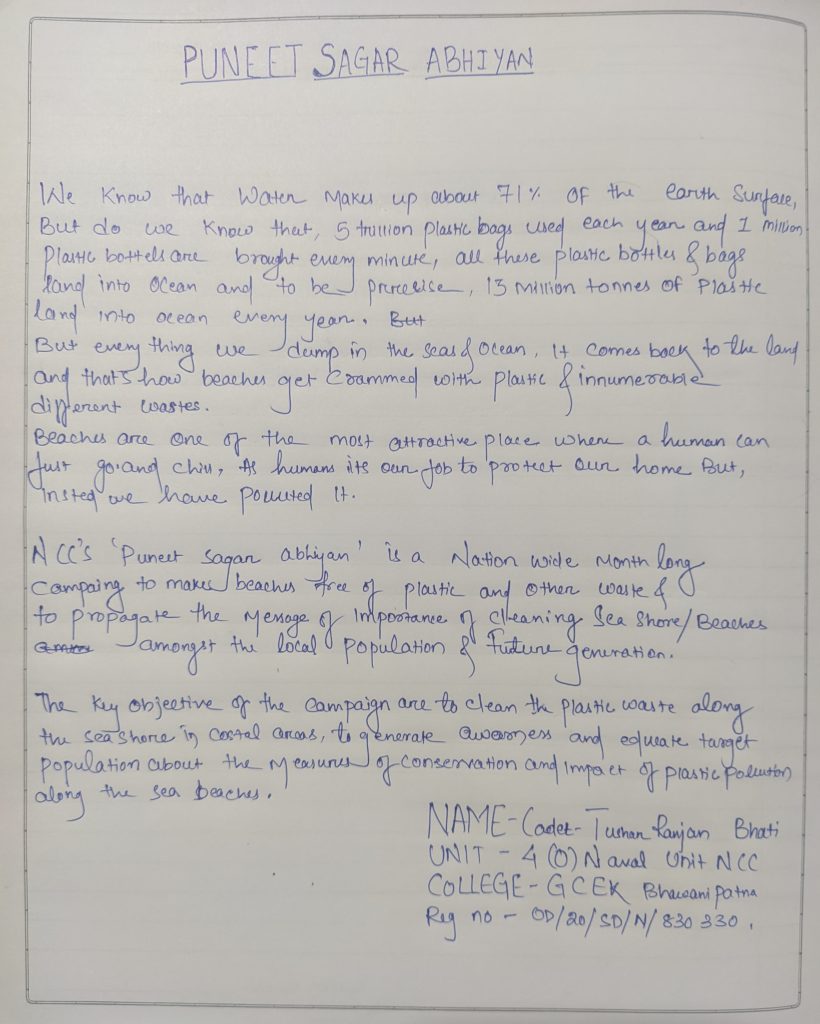 PUNEET SAGAR ABHIYAN
We Know that Water Makes up about 71% OF the earth Surface,
But do we Know that, 5 trillion plastic bags used each year and 1 million
Plastic bottels are brought every minute, all these plastic bottles & bags
land into Ocean and to be precise, 13 Million tonnes of Plastic
land into ocean every year. But
But every thing we dump in the seas & Ocean, It comes back to the land
and that's how beaches get Crammed with plastic & innumerable
different wastes.
Beaches are One of the most attractive place where a human can
Just go and chill, As humans its our Job to protect our home But,
insted we have polluted It.
NCC's 'Puneet Sagar abhiyan' is a Nation wide Month long
Campaing to makes beaches free of plastic and Other waste &
to propagate the Message of Importance of cleaning Sea Shore/Beaches
amongst the local population & Future generation.
The Key Objective of the Campaign are to clean the plastic waste along
the sea shore in costal areas, to generate awarness and educate target
population about the Measures of conservation and impact of plastic pollution
along the sea beaches.
NAME - Cadet - Tushar Ranjan Bhati
UNIT - 4 (O) Naval Unit NCC
COLLEGE - GCEK Bhawanipatna
Reg no - OD/20/SD/N/830330.